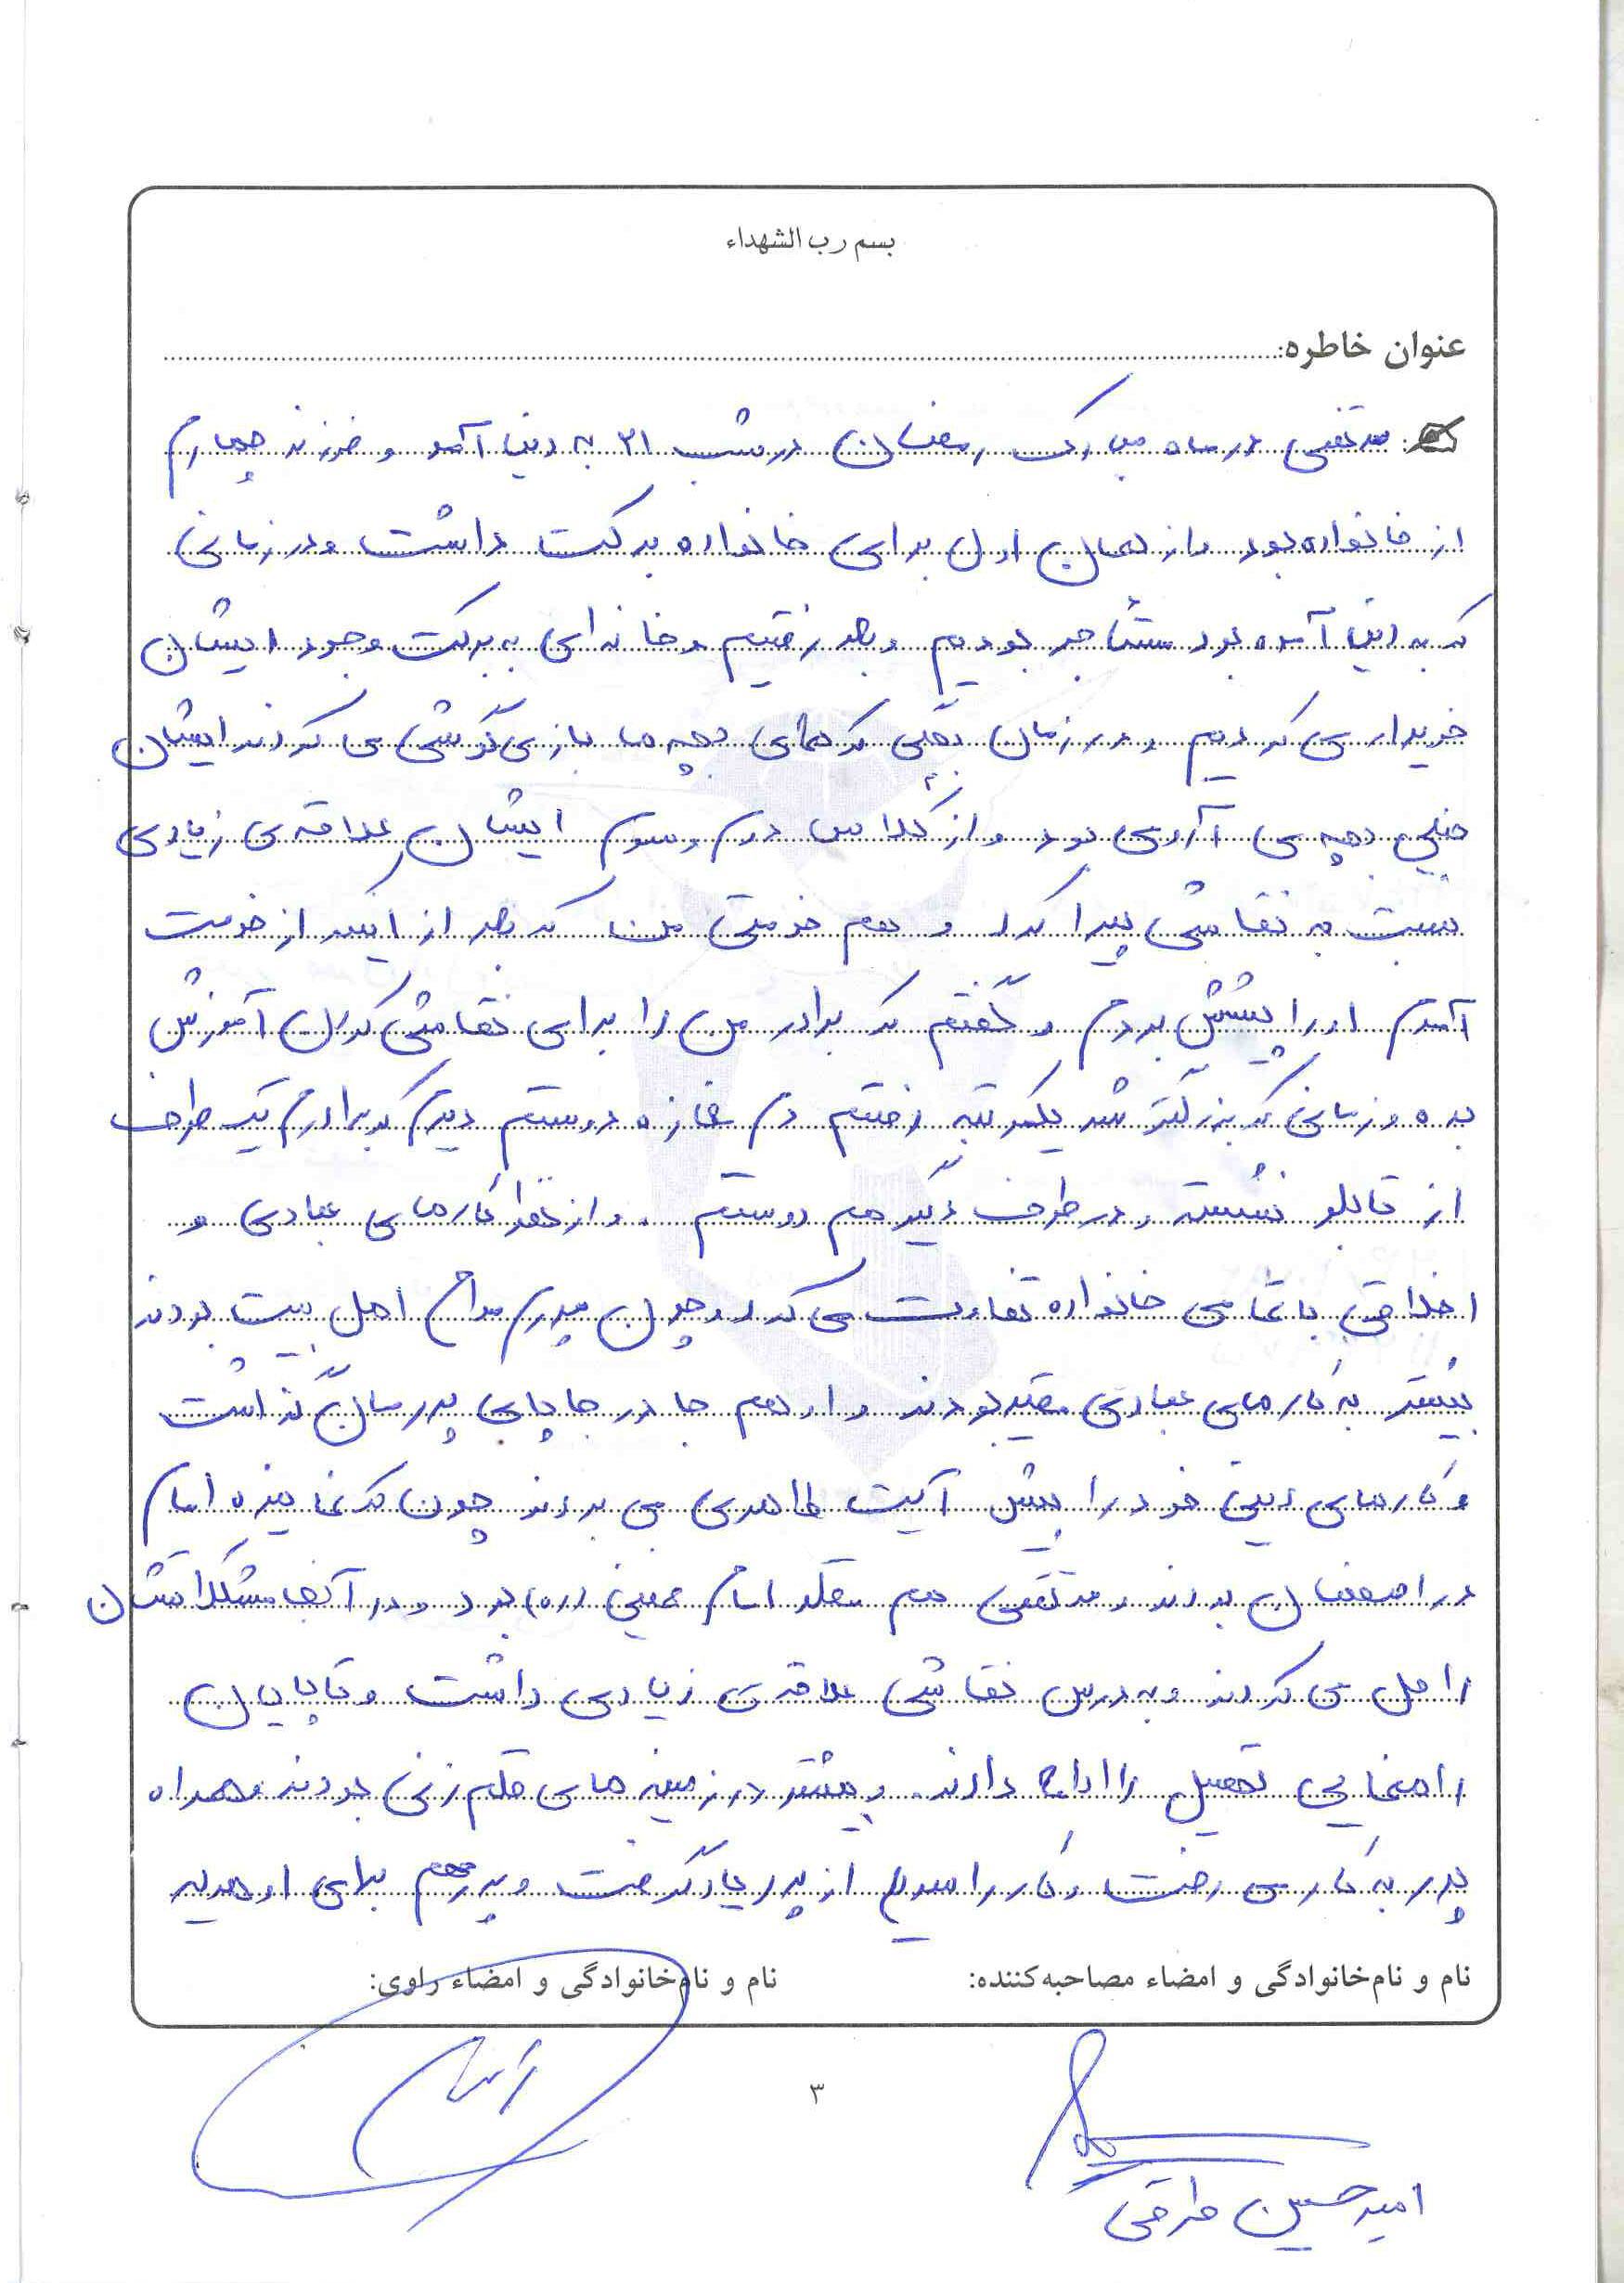 بسم رب الشهداء
عنوان خاطره:
مرتضی در ماه مبارک رمضان در شب ۲۱ به دنیا آمد و فرزند چهارم
از خانواده بود و از همان اول برای خانواده برکت داشت و در زمانی
که به دنیا آمده بود مستأجر بودیم و بعد رفتیم و خانه‌ای به برکت وجود ایشان
خریداری کردیم و در زمان بچگی که همای بچه ها بازی گوشی می کردند ایشان
خیلی بچه ی آرومی بود و از کلاس دوم و سوم ایشان علاقه ی زیادی
نسبت به نقاشی پیدا کرد و هم خدمتی من که بعد از اینکه از خدمت
آمدم او را پیشش بردم و گفتم که برادر من را برای نقاشی کردن آموزش
بده و زمانی که بزرگتر شد یکمرتبه رفتم دم مغازه دوستم دیدم که برادرم یک طرف
از تابلو نشسته و در طرف دیگر هم دوستم . و از نظر کارهای عبادی و
اخلاقی با تمامی خانواده تفاوت می کرد و چون پدرم مداح اهل بیت بودند
بیشتر به کارهای عبادی مقید بودند و او هم جا در جاپای پدرمان گذاشت
و کارهای دینی خود را پیش آیت طاهری می بردند چون که نماینده امام
در اصفهان بودند و مرتضی هم مقلد امام خمینی (ره) بود و در آنجا مشکلاتشان
را حل می کردند و به درس نقاشی علاقه ی زیادی داشت و تا پایان
راهنمایی تحصیل را ادامه دادند. و بیشتر در زمینه های قلم زنی بودند و همراه
پدر به کار می رفت و کار را سریع از پدر یاد گرفت و پدر هم برای او هدیه
نام و نام‌خانوادگی و امضاء مصاحبه‌کننده:
نام و نام‌خانوادگی و امضاء راوی:
۳
امیرحسین